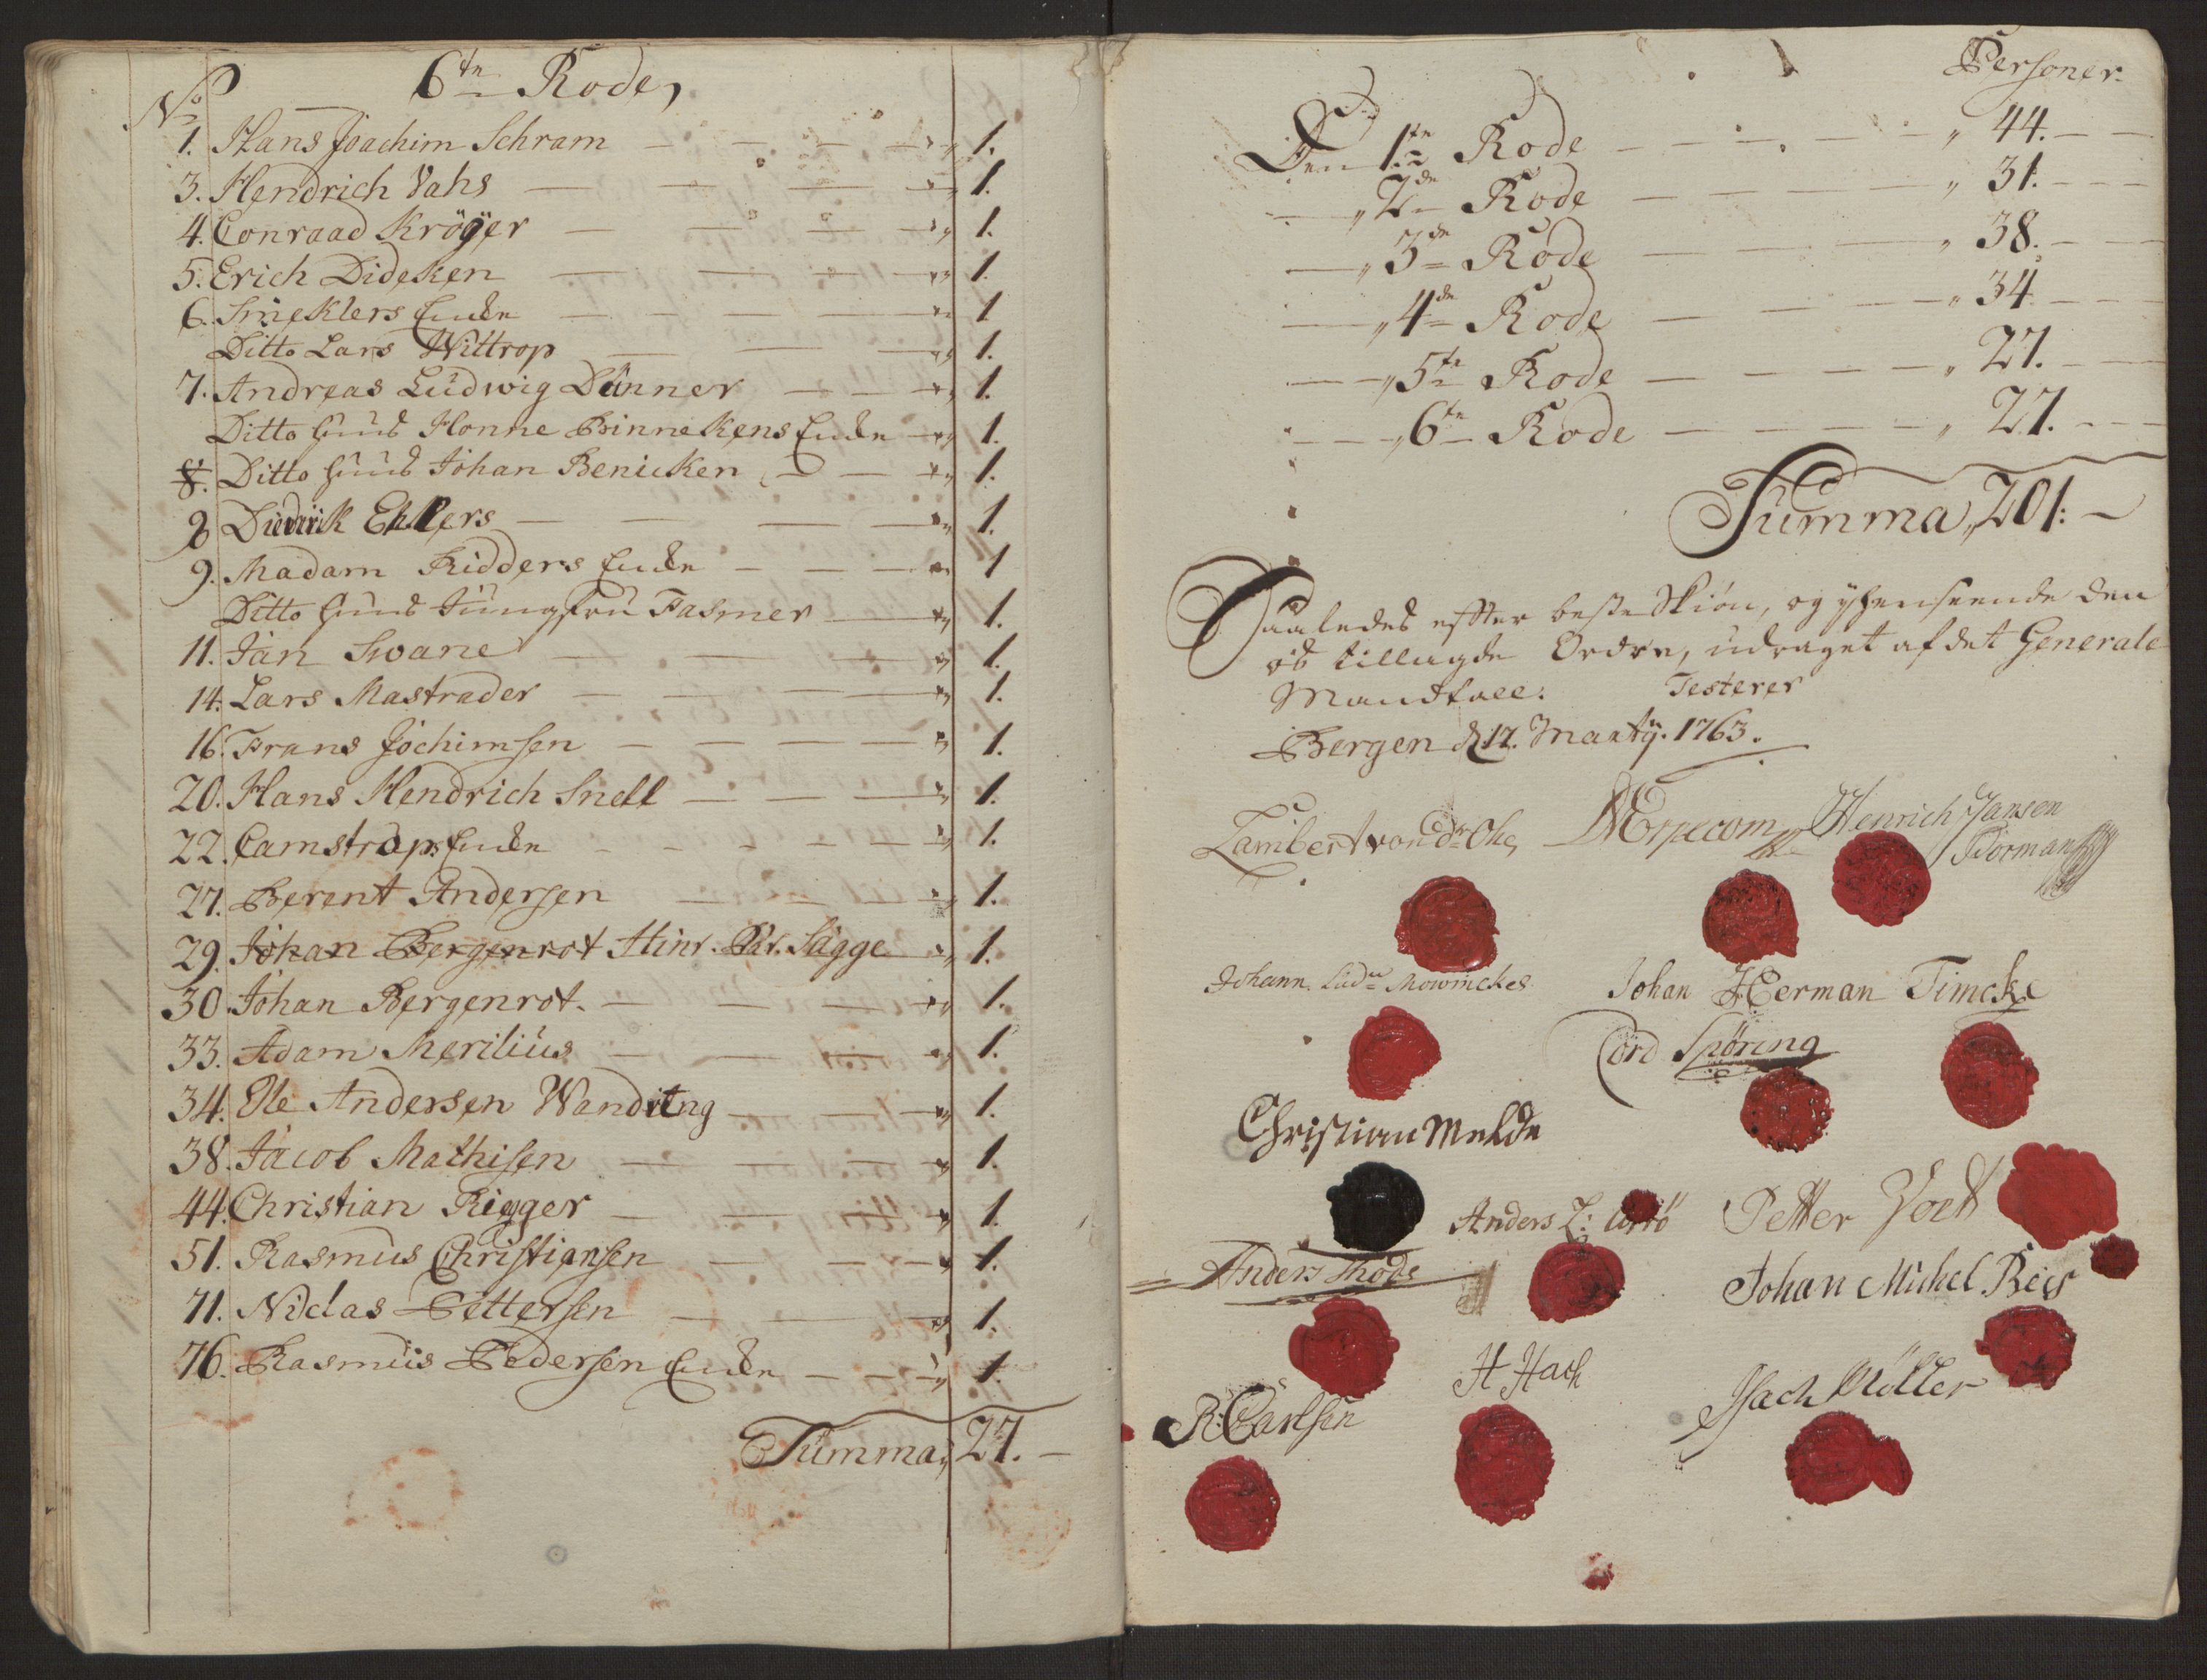 6te Rode,
No
1. Hans Joachim Schram 1.
3. Hendrich Vahs 1.
4. Conraad Kröÿer 1.
5. Erich Dideken 1.
6. Smeklers Encke 1
Ditto Lars Wittrop 1.
7. Andreas Ludwig Danner 1.
Ditto huus Honne Binnekens Encke 1.
8. Ditto huus Johan Benicken 1.
8 Diedrik Ehlers 1.
9. Madam Ridders Encke 1
Ditto huus Jungfru Fasmer 1.
11. Jan Swane 1.
14. Lars Mastrader 1.
16. Frans Jochimsen 1.
20. Hans Hendrich Snell 1.
22. Camstrops Encke 1.
27. Berent Andersen 1.
29. Johan Bergenrot Hinr. Sägge 1.
30. Johan Bergenrot. 1.
33. Adam Merilius 1.
34. Ole Andersen Wanding 1.
38. Jacob Mathisen 1.
44. Christian Rigger 1.
51. Rasmus Christiansen 1.
71. Niclas Pettersen 1.
76. Rasmus Pedersen Encke 1.
Summa, 27.
Personer.
Den 1te Rode 44.
2de Rode 31.
3de Rode 38.
4de Rode 34
5te Rode 27.
6te Rode 27.
Summa, 201.
Saaledes effter beste Skiøn, og den
os tillagde Ordre, udraget af det Generale
Mandtall. Testerer
Bergen d. 17. Martÿ. 1763.
Lambert von dr Ohe, Henrich Jansen
Dorman
Johann Ludw Mowinckes Johan Herman Timcke
Cord Spöring
Christian Melde
Anders L: Petter Voet
Anders Thode Johan Michel Beÿr
H Hach
R: Carlsen Isach Möller